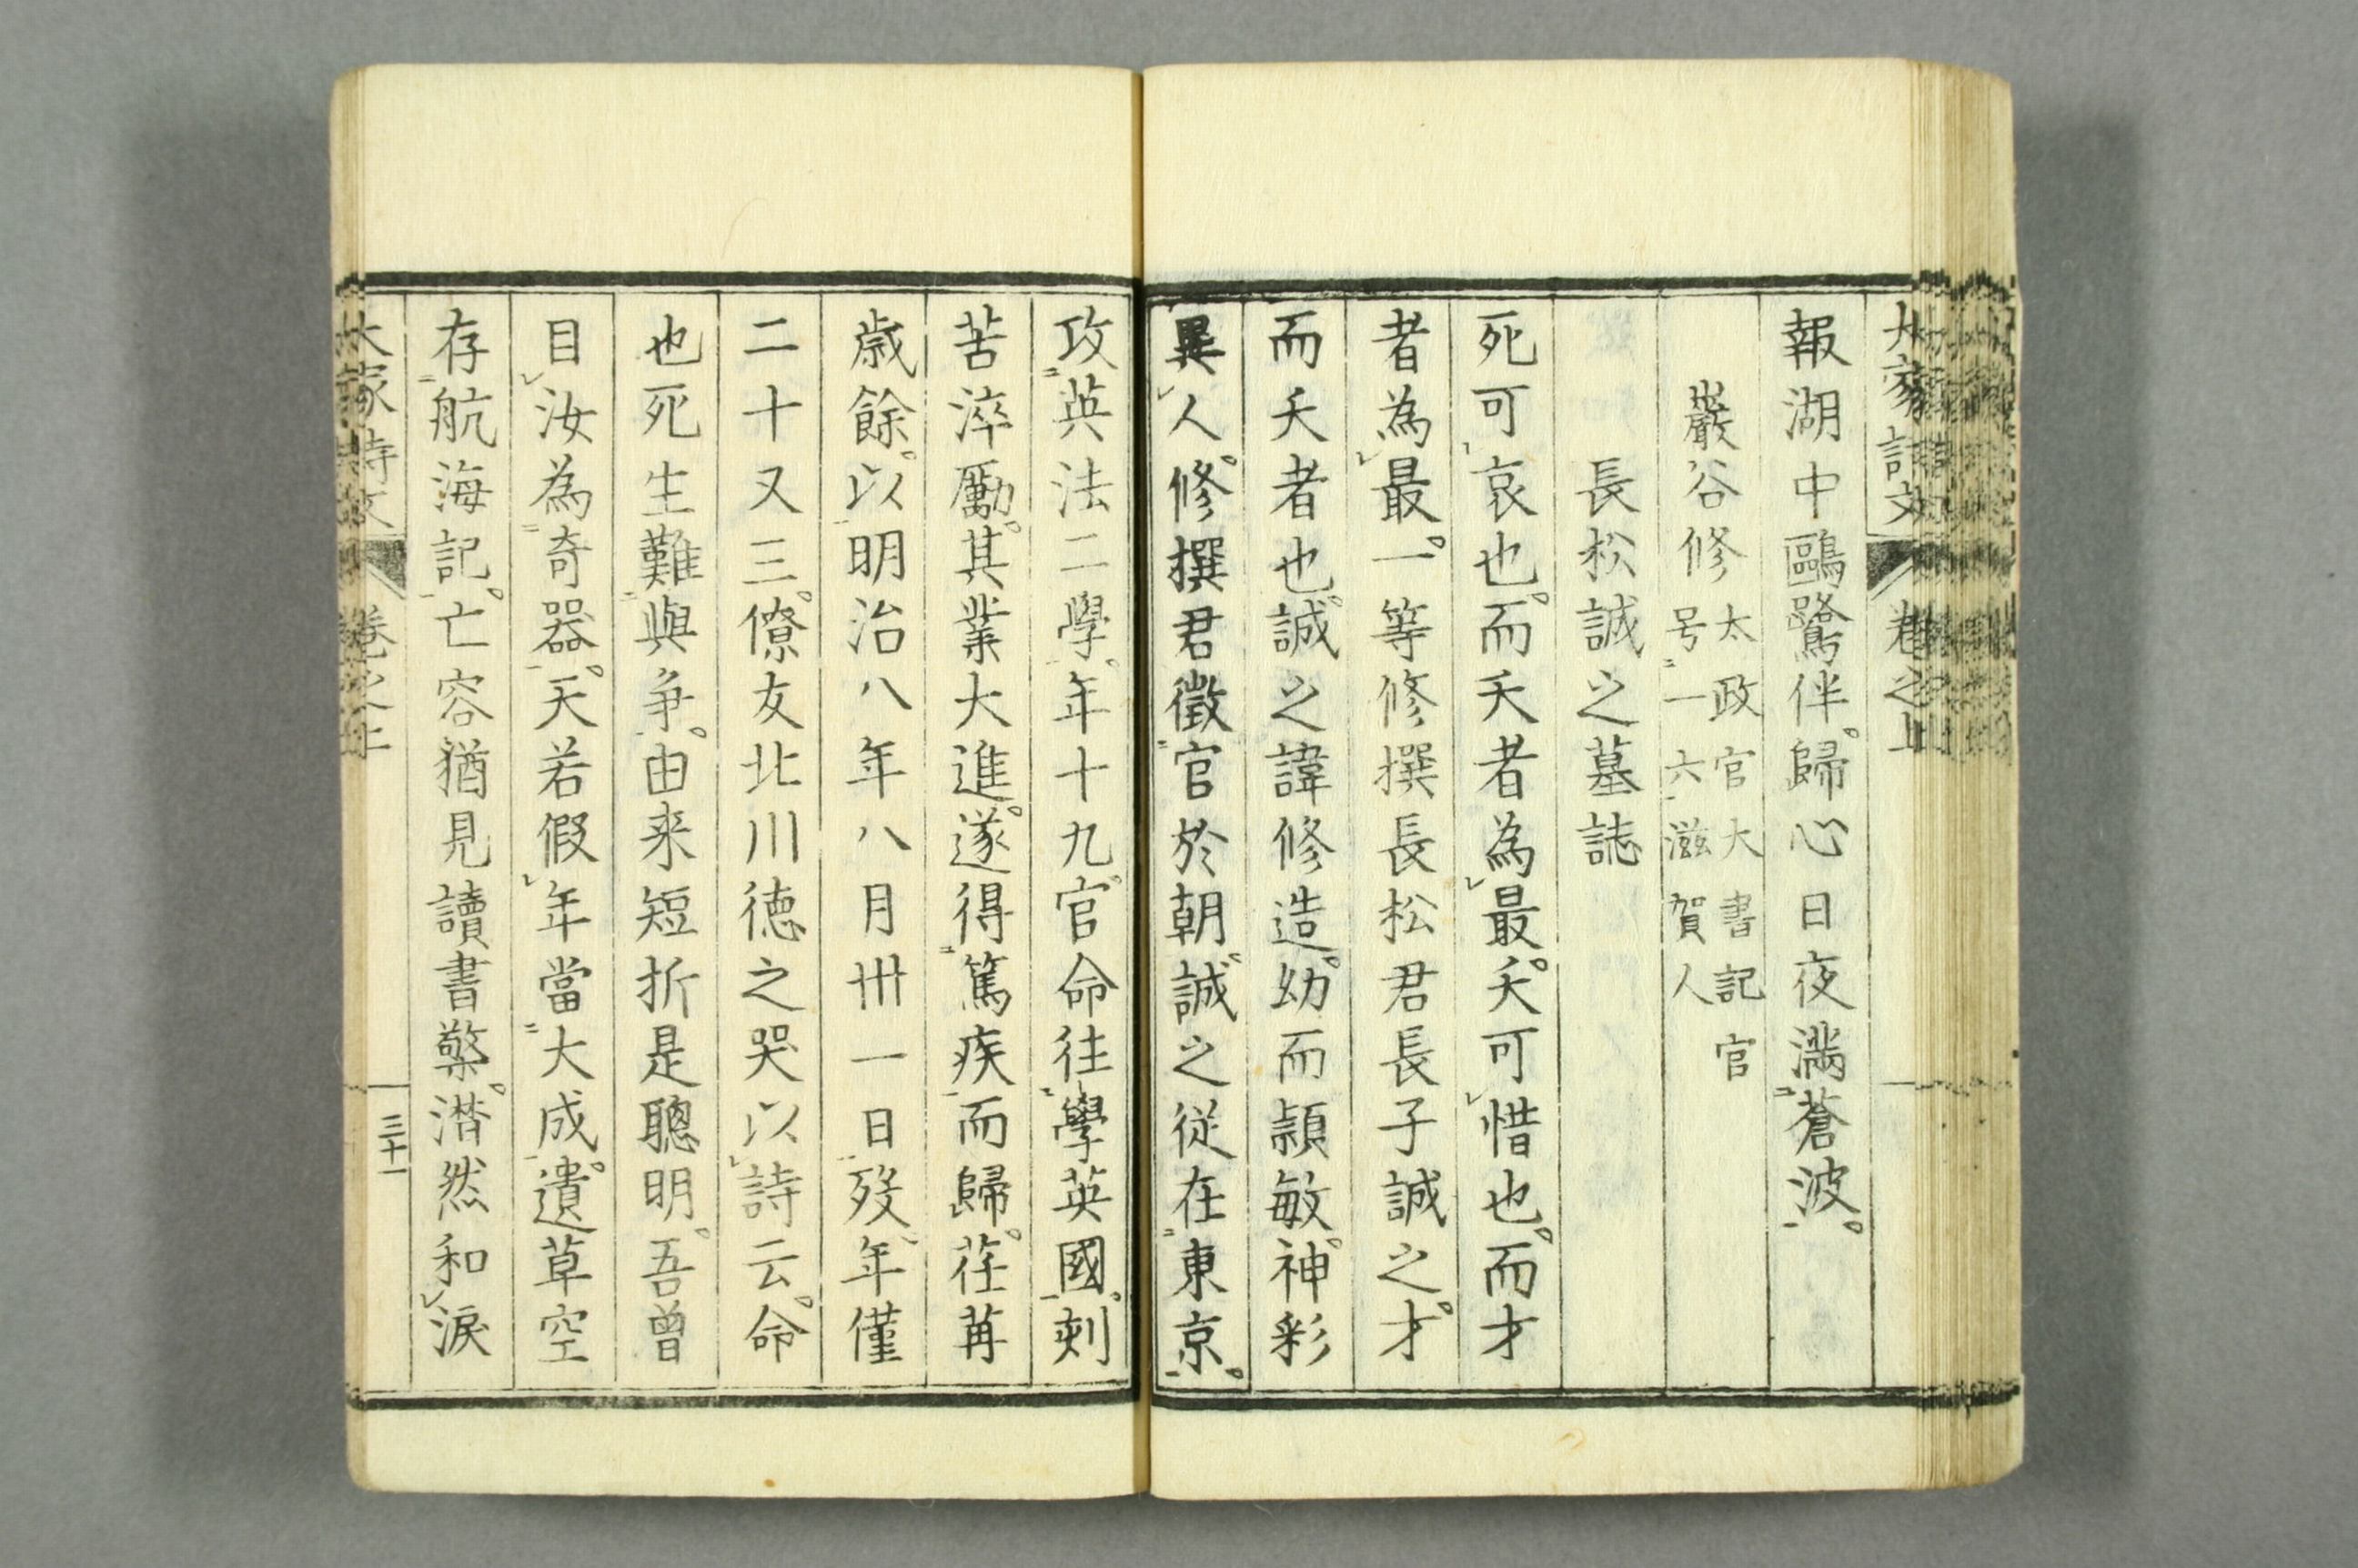 大家詩文 卷之上
報湖中鷗鷺伴。歸心日夜滿蒼波。
巖谷修 太政官大書記官
号一六滋賀人
長松誠之墓誌
死可哀也。而夭者為最。夭可惜也。而才
者為最。一等修撰長松君長子誠之。才
而夭者也。誠之諱修造。幼而頴敏。神彩
異人。修撰君徵官於朝。誠之從在東京。
攻英法二學。年十九。官命往學英國。刻
苦淬勵。其業大進。遂得篤疾而歸。荏苒
歲餘。以明治八年八月卅一日歿。年僅
二十又三。僚友北川德之哭以詩云。命
也死生難與爭。由来短折是聰明。吾曾
目汝為奇器。天若假年當大成。遺草空
存航海記。亡容猶見讀書檠。潸然和淚
大家詩文 卷之上 三十一